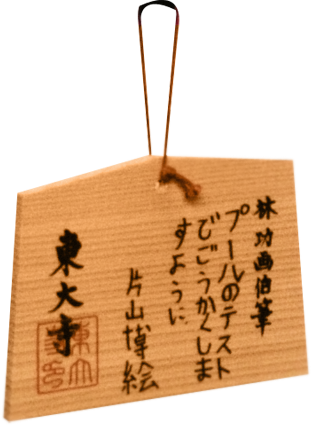 林功画伯筆
プールのテスト
でごうかくしま
すように
片山博絵
東大寺